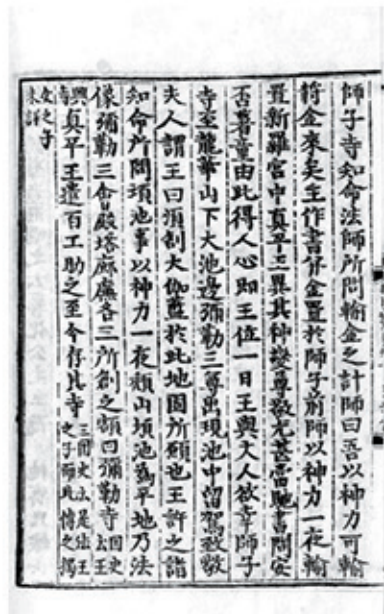 師子寺知命法師所問輸金之計師曰吾以神力可輸
符金來矣主作書併金置於師子前師以神力一夜輸
置新羅宮中真平王異其神變尊敬尤甚常馳書問安
否薯童由此得人心即王位一日王與夫人欲幸師子
寺至龍華山下大池邊彌勒三尊出現池中留駕致敬
夫人謂王曰須創大伽藍於此地固所願也王許之詣
知命所問塡池事以神力一夜頹山塡池為平地乃法
像彌勒三會殿塔廊廡各三所創之額曰彌勒寺國史云王
興寺真平王遣百工助之至今存其寺三國史云是法王之子而此傳之獨
女之子未詳